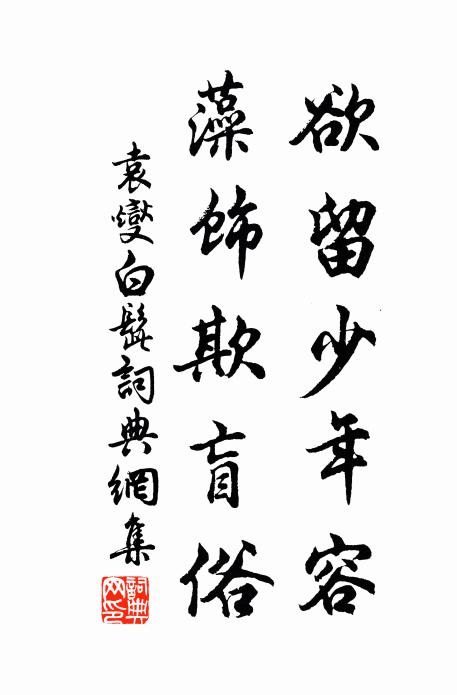 欲留少年容
藻飾欺盲俗
袁燮白髭詞典網集
詞典網印